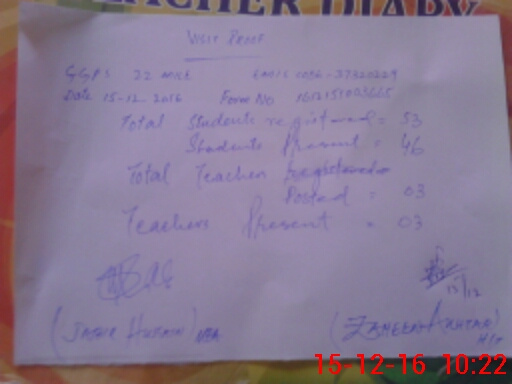 TEACHER DIARY
VISIT PROOF
GGPS 32 EMIS CODE - 37320229
Date 15-12-2016 Form No
Total Students registered = 53
Students Present = 46
Total Teacher Registered
Posted = 03
Teachers Present = 03
15/12
(ZAHEER AKHTAR)
H/T
15-12-16 10:22